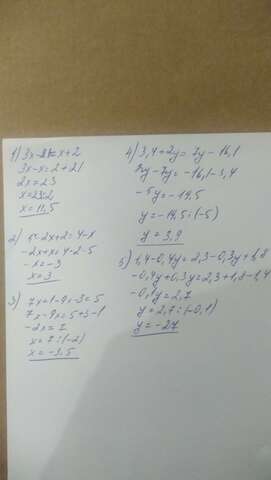 1) 3x-21=x+2
3x-x=2+21
2x=23
x=23:2
x=11,5
2) 5-2x+2=4-x
-2x+x=4-2-5
-x=-3
x=3
3) 7x+1-9x-3=5
7x-9x=5+3-1
-2x=7
x=7:(-2)
x=-3,5
4) 3,4+2y=7y-16,1
2y-7y=-16,1-3,4
-5y=-19,5
y=-19,5:(-5)
y=3,9
5) 1,4-0,4y=2,3-0,3y+1,8
-0,4y+0,3y=2,3+1,8-1,4
-0,1y=2,7
y=2,7:(-0,1)
y=-27